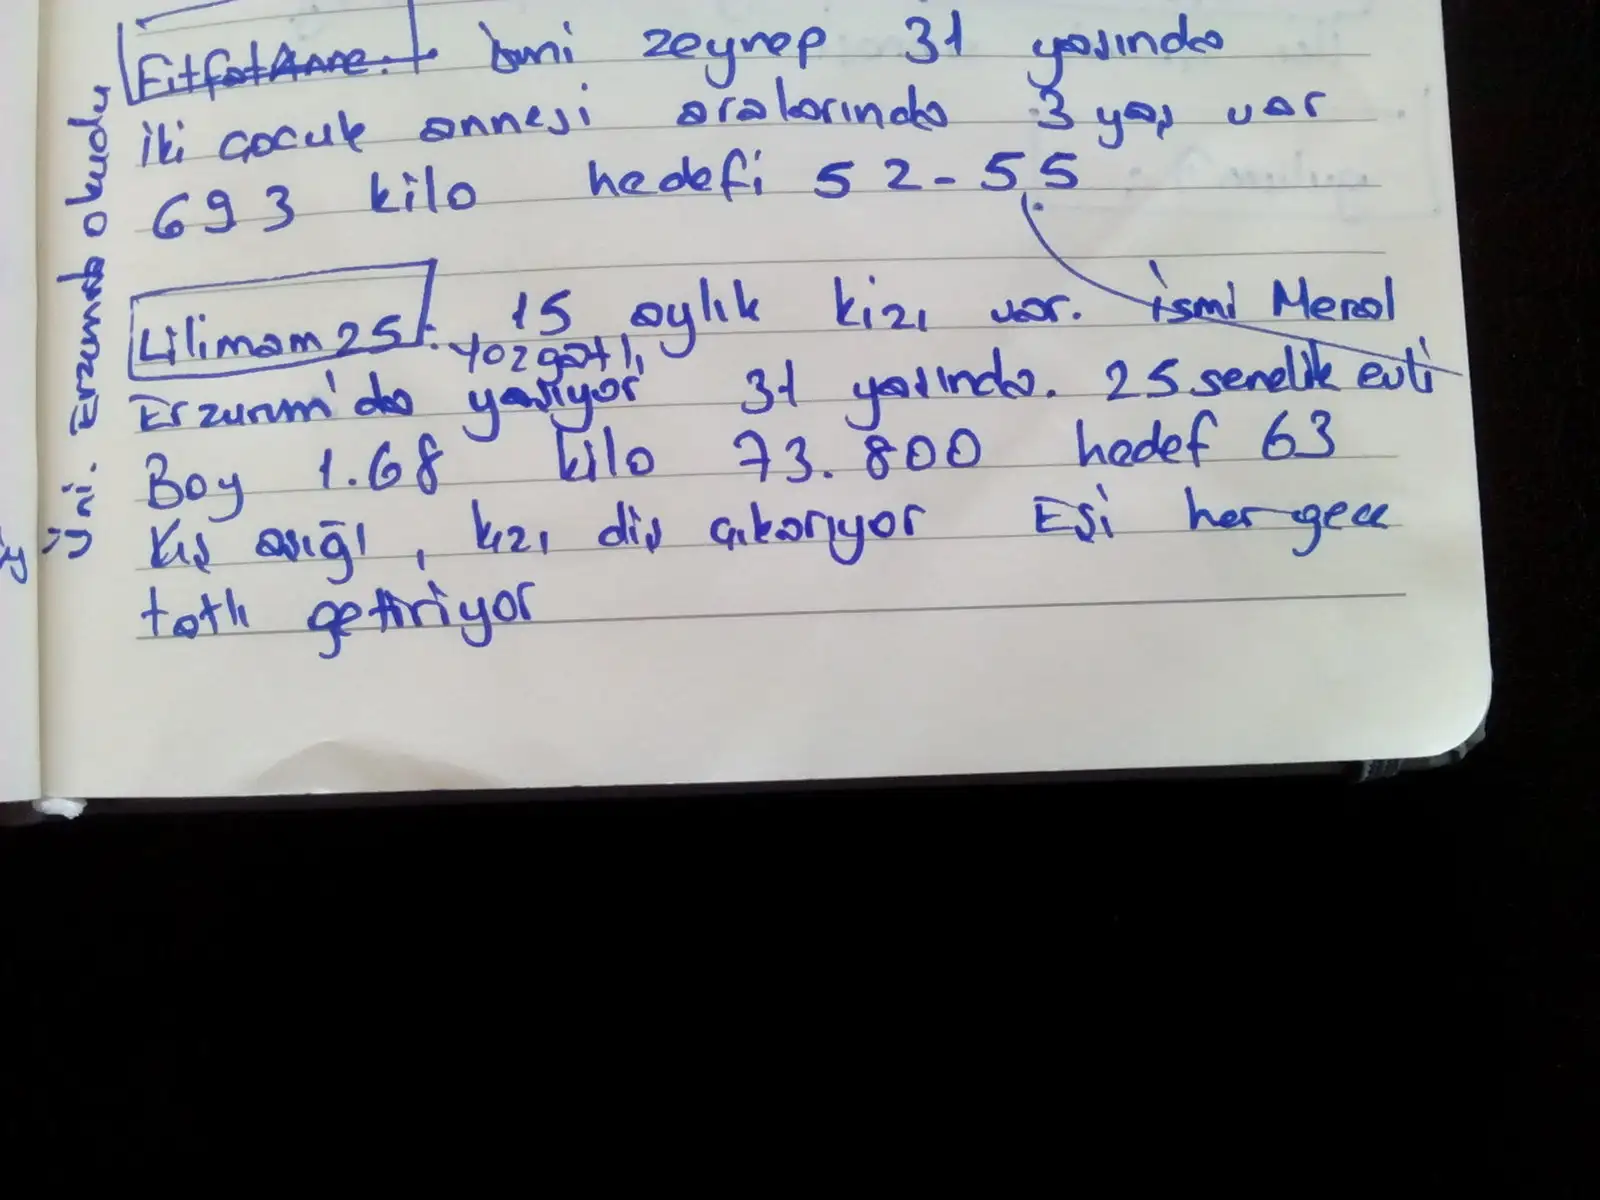 FitfatAnne: ismi zeynep 31 yaşında
iki çocuk annesi aralarında 3 yaş var
693 kilo hedefi 52-55
Lilimam25: 15 aylık kızı var. ismi Meral
yozgatlı,
Erzurum'da yaşıyor 31 yaşında. 2.5 senelik evli
Boy 1.68 kilo 73.800 hedef 63
Kış aşığı, kızı diş çıkarıyor Eşi her gece
tatlı getiriyor
üni. Erzurumda okudu